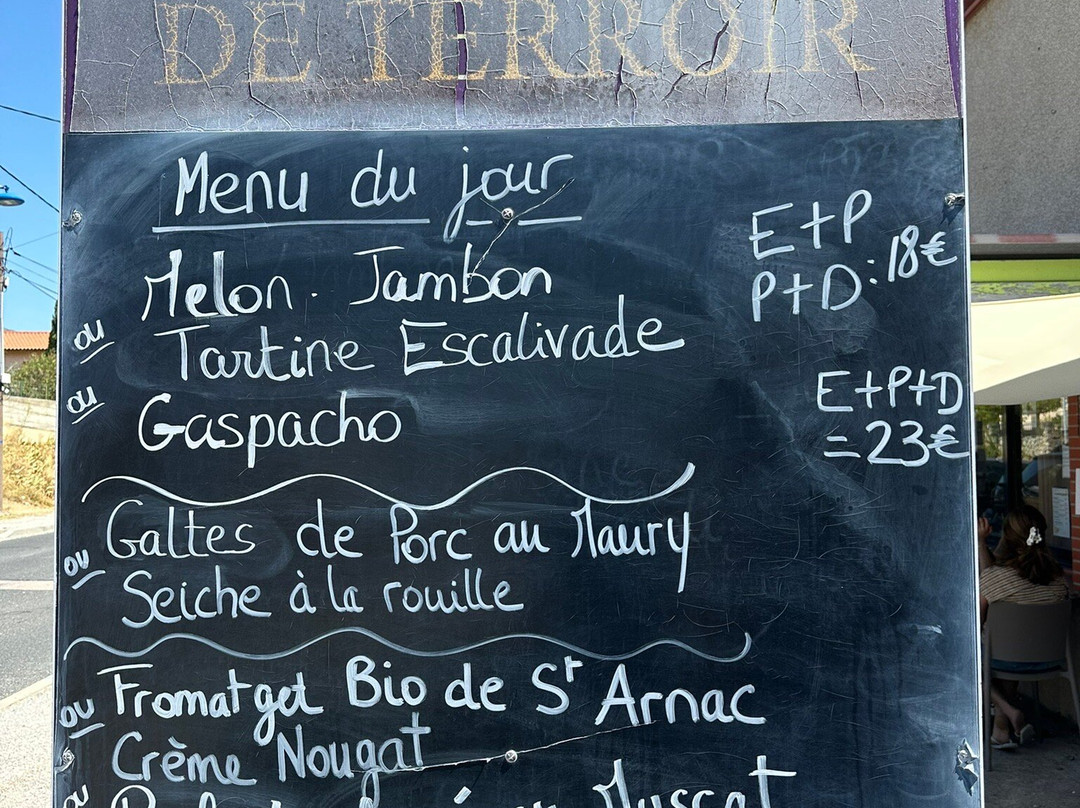 DE TERROIR
Menu du jour
E+P
P+D : 18€
Melon. Jambon
ou
Tartine Escalivade
ou
Gaspacho
E+P+D
= 23€
Galtes de Porc au Maury
ou
Seiche à la rouille
Fromatget Bio de St Arnac
ou
Crème Nougat
ou
Muscat